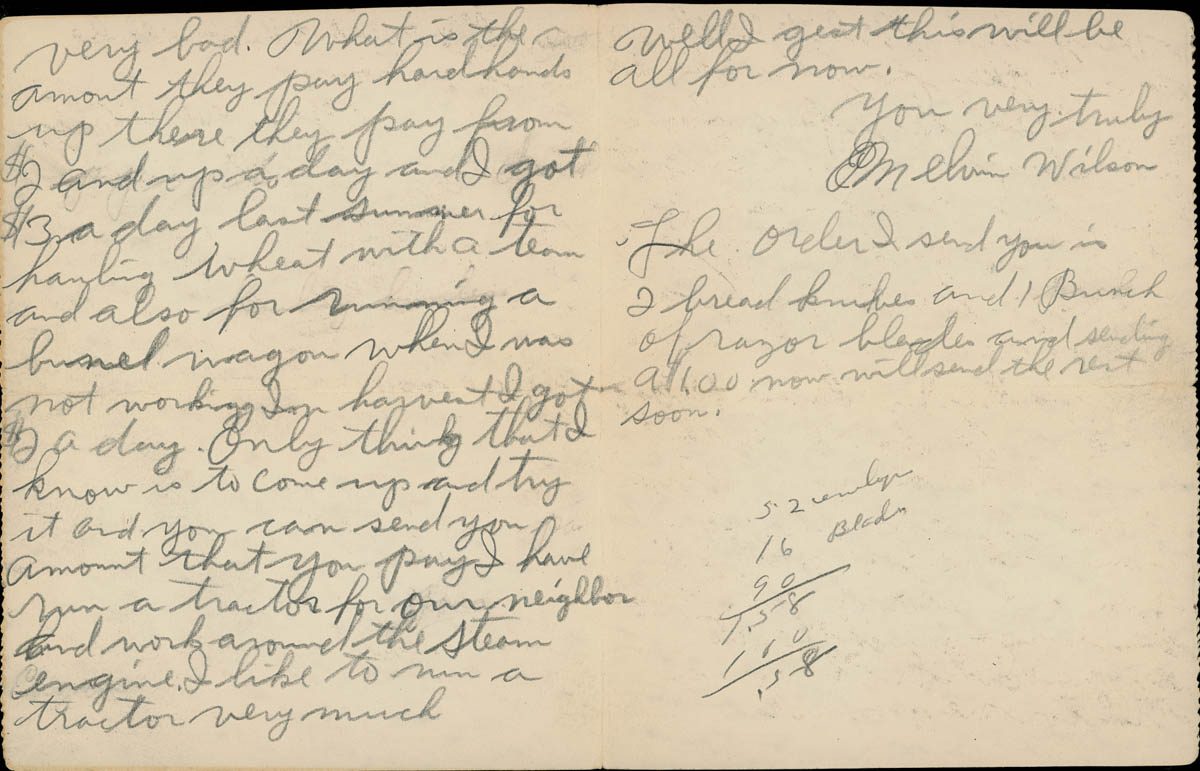 very bad. What is the
amont they pay hard hands
up there they pay from
$2 and up a day and I got
$3 a day last summer for
hauling wheat with a team
and also for running a
bunel wagon when I was
not working In harvest I got
$2 a day. Only thing that I
know is to come up and try
it and you can send you
amount that you pay I have
run a tractor for our neighbor
and work around the steam
engine. I like to run a
tractor very much
Well I gest this will be
all for now.
You very truly
Melvin Wilson
The order I send you is
2 bread knibes and 1 Bunch
of razor blades and sending
a $1.00 now will send the rest
soon.
52
Blades
16
90
1.58
1 10
.58